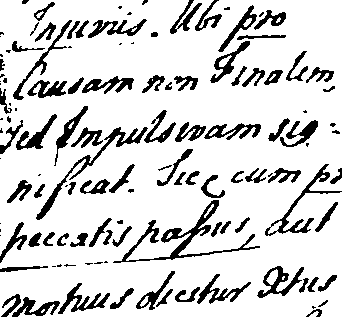 Injuriis. Ubi pro
Causam non Finalem,
sed Impulsivam sig=
nificat. Sic cum pr
peccatis passus, aut
mortuus dicitur Xtus